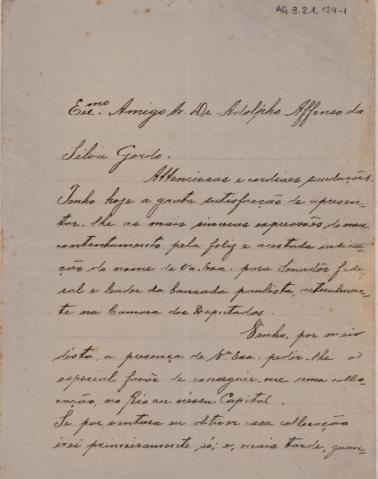 AG 3.2.1. 124-1
Exe.mo Amigo Sr. Dr. Adolpho Affonso da
Silva Gordo.
Attenciosas e cordiaes saudações.
Tenho hoje a grata satisfacção de apresen-
tar-lhe as mais sinceras expressões do meu
contentamento pela feliz e acertada indica-
ção do nome de Va. Exa. para Senador fede-
ral e leader da bancada paulista, actualmen-
te na Camara dos Deputados.
Venho, por meio
desta, a presença de Va. Exa. pedir-lhe o
especial favôr de conseguir-me uma collo-
cação, no Rio ou nessa Capital.
Se por ventura eu obtiver essa collocação
irei primeiramente só; e, mais tarde, quan-